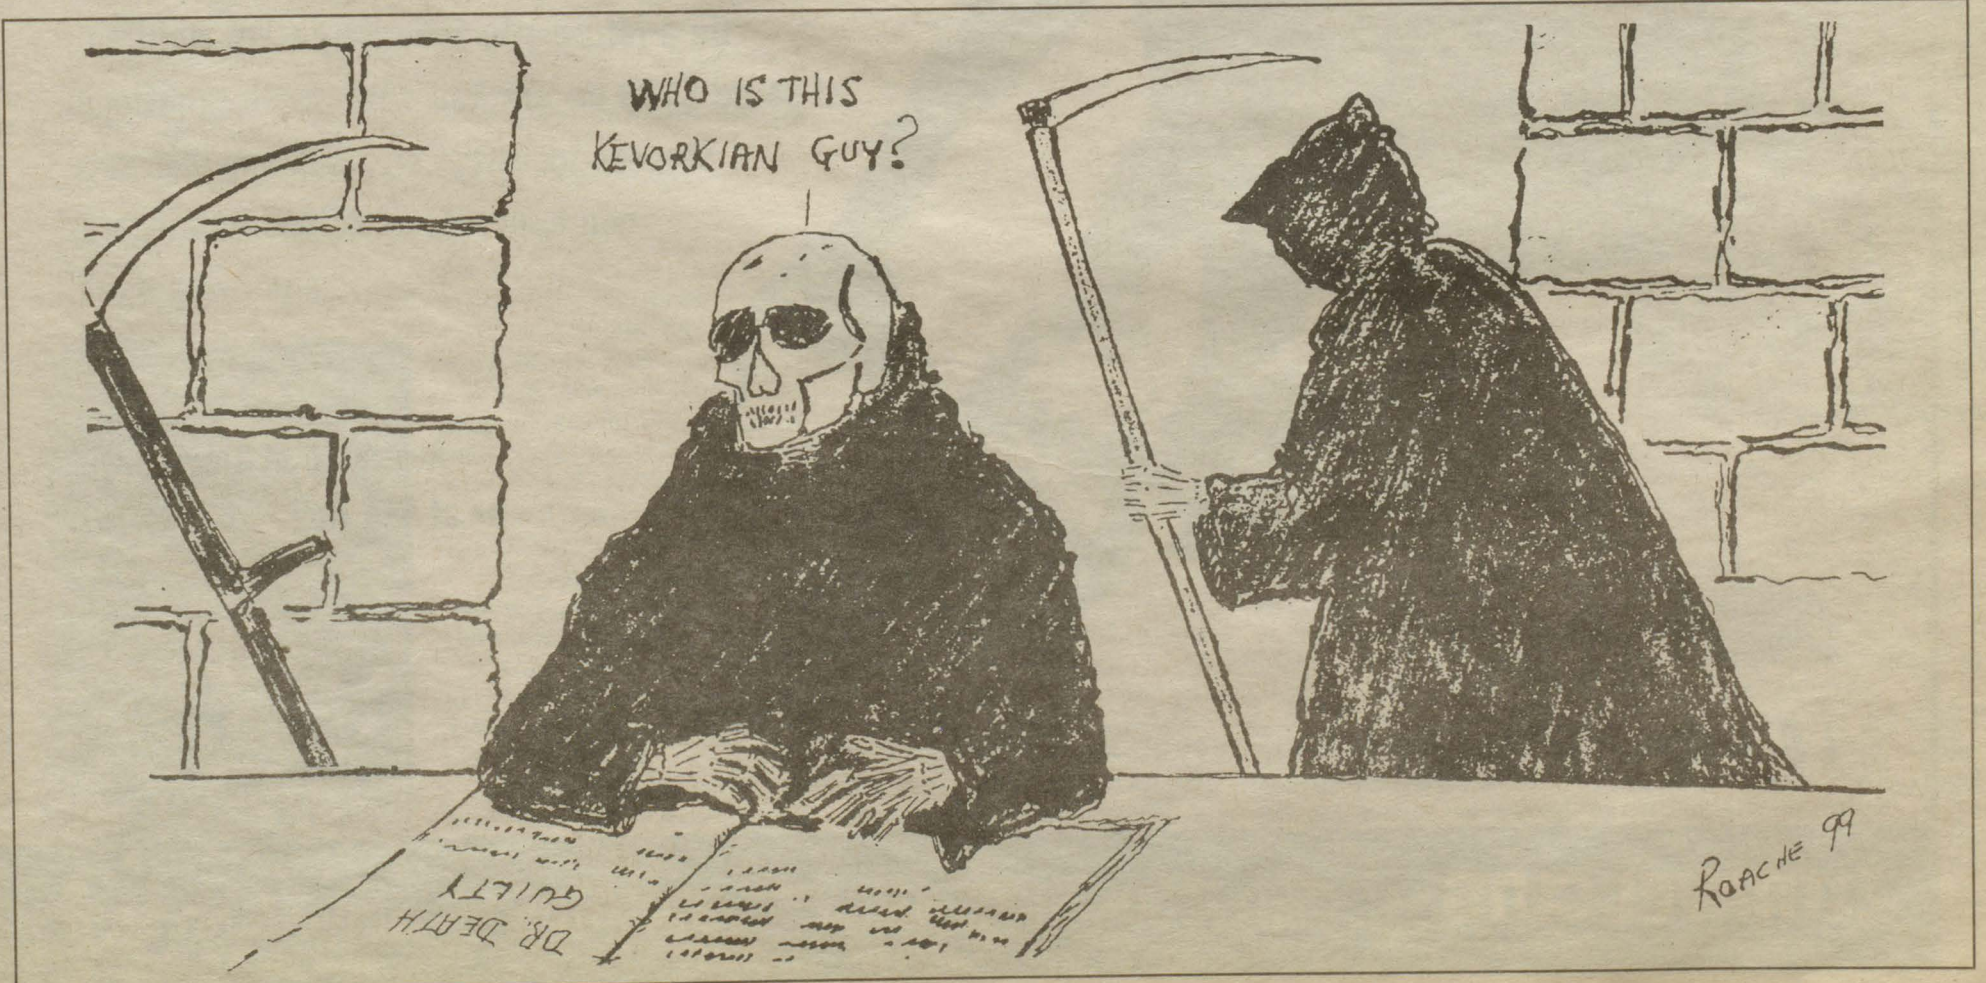 WHO IS THIS
KEVORKIAN GUY?
DR. DEATH
GUILTY
ROACHE 99